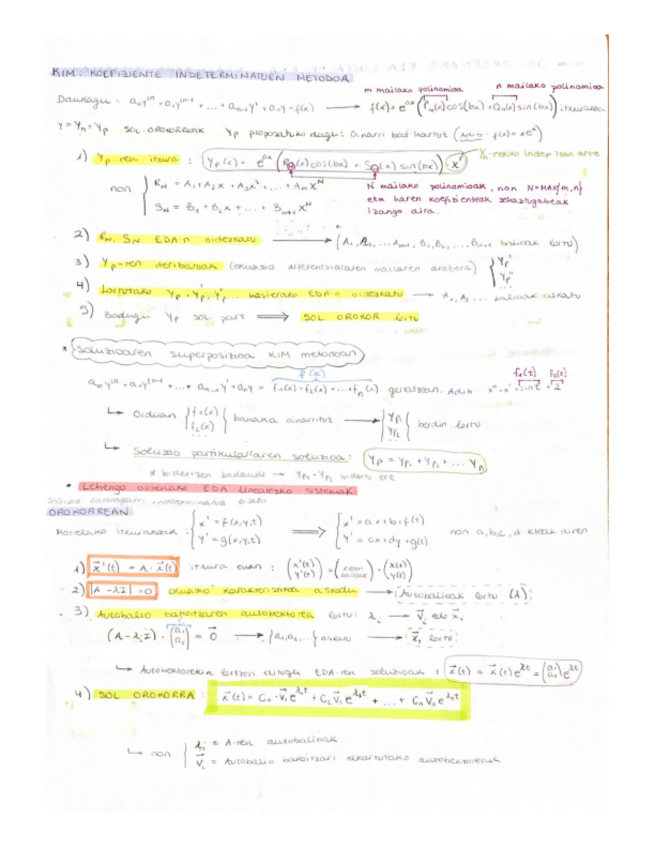 KIM: KOEFIZIENTE INDETERMINATUEN METODOA
m mailako polinomioa n mailako polinomioa
Daukagu: a₀yⁿ + a₁yⁿ⁻¹ + ... + aₙ₋₁y' + aₙy = f(x) → f(x) = e^ax (Pₘ(x)cos(bx) + Qₙ(x)sin(bx)) itxurakoa
y = yₕ + yₚ SOL. OROKORREAN yₚ proposatuko dugu: Oinarri bat hartuz (Adib. f(x) = xeˣ)
1) yₚ-ren itxura: yₚ(x) = e^ax (R_N(x)cos(bx) + S_N(x)sin(bx)) xˢ
non { R_N = A₁ + A₂x + A₃x² + ... + Aₘx^N
S_N = B₁ + B₂x + ... + Bₘ₊₁x^N
N mailako polinomioak, non N = MAX{m,n}
eta haren koefizienteak zehaztugabeak
izango dira.
2) R_N, S_N EDA-n ordezkatu → (A₁, A₂, ... Aₘ₊₁, B₁, B₂, ..., Bₙ₊₁ balioak lortu)
3) yₚ-ren deribatuak (ekuazio diferentzialaren mailaren arabera) { yₚ' yₚ'' ...
4) Lortutako yₚ, yₚ', yₚ''... hasierako EDA-n ordezkatu → A₁, A₂ ... balioak askatu
5) Badugu yₚ sol part ⟹ SOL OROKOR lortu
* Soluzioaren superposizioa KIM metodoan
f(x) f₁(t) f₂(t)
a₀yⁿ + a₁yⁿ⁻¹ + ... + aₙ₋₁y' + aₙy = f₁(x) + f₂(x) + ... + fₙ(x) geratzean. Adib x'' - x' = sin t + 2
↳ Orduan { f₁(x) f₂(x) ... } banaka oinarrituz → { yₚ₁ yₚ₂ } berdin lortu
↳ Soluzio partikularraren soluzioa: yₚ = yₚ₁ + yₚ₂ + ... yₙ
* biderketan badaude → yₚ₁ · yₚ₂ bidertu ere
• Lehengo ordenako EDA linealezko sistemak
OROKORREAN
Honelako itxurakoak: { x' = f(x,y,t) y' = g(x,y,t) ⟹ { x' = ax + by + f(t) y' = cx + dy + g(t) non a,b,c,d kteak diren
1) x⃗'(t) = A · x⃗(t) itxura eman: (x'(t) y'(t)) = (koen balioak) · (x(t) y(t))
2) |A - λI| = 0 ekuazio karakteristikoa askatu → Autobalioak lortu (λ)
3) Autobalio bakoitzaren autobektorea lortu: λᵢ → v⃗ᵢ edo x⃗ᵢ
(A - λᵢI) · (a₁ a₂) = 0⃗ → {a₁, a₂, ...} askatu → x⃗₁ lortu
↳ Autobektorekin lortzen ditugu EDA-ren soluzioak: x⃗(t) = x⃗(t)e^λt = (a₁ a₂)e^λt
4) SOL OROKORRA: x⃗(t) = C₁ · v⃗₁e^λ₁t + C₂v⃗₂e^λ₂t + ... + Cₙv⃗ₙe^λₙt
↳ non { λᵢ = A-ren autobalioak
v⃗ᵢ = Autobalio bakoitzari elkartutako autobektoreak